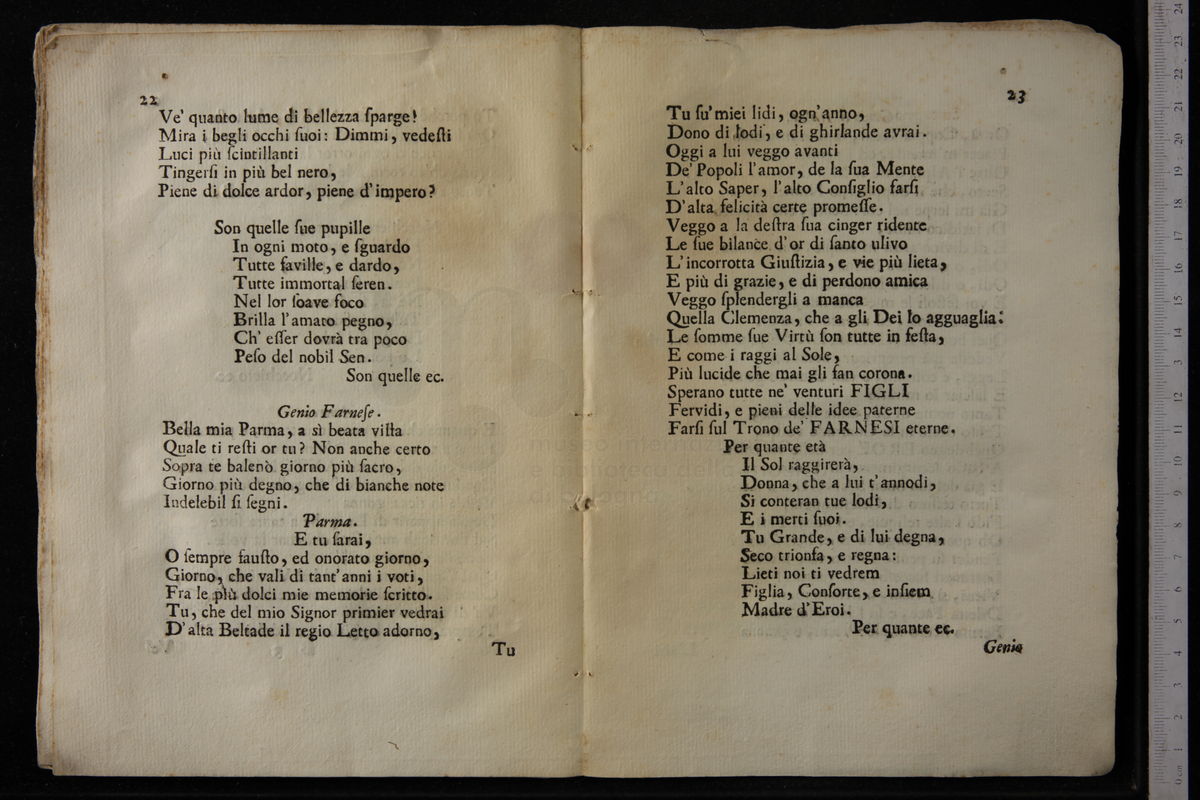 22
Ve' quanto lume di bellezza ſparge!
Mira i begli occhi ſuoi: Dimmi, vedeſti
Luci più ſcintillanti
Tingerſi in più bel nero,
Piene di dolce ardor, piene d'impero?
Son quelle ſue pupille
In ogni moto, e ſguardo
Tutte faville, e dardo,
Tutte immortal ſeren.
Nel lor ſoave foco
Brilla l'amato pegno,
Ch' eſſer dovrà tra poco
Peſo del nobil Sen.
Son quelle ec.
Genio Farneſe.
Bella mia Parma, a sì beata viſta
Quale ti reſti or tu? Non anche certo
Sopra te balenò giorno più ſacro,
Giorno più degno, che di bianche note
Indelebil ſi ſegni.
Parma.
E tu ſarai,
O ſempre fauſto, ed onorato giorno,
Giorno, che vali di tant'anni i voti,
Fra le più dolci mie memorie ſcritto.
Tu, che del mio Signor primier vedrai
D'alta Beltade il regio Letto adorno,
Tu
23
Tu ſu' miei lidi, ogn'anno,
Dono di lodi, e di ghirlande avrai.
Oggi a lui veggo avanti
De' Popoli l'amor, de la ſua Mente
L'alto Saper, l'alto Conſiglio farſi
D'alta felicità certe promeſſe.
Veggo a la deſtra ſua cinger ridente
Le ſue bilance d'or di ſanto ulivo
L'incorrotta Giuſtizia, e vie più lieta,
E più di grazie, e di perdono amica
Veggo ſplendergli a manca
Quella Clemenza, che a gli Dei lo agguaglia:
Le ſomme ſue Virtù ſon tutte in feſta,
E come i raggi al Sole,
Più lucide che mai gli fan corona.
Sperano tutte ne' venturi FIGLI
Fervidi, e pieni delle idee paterne
Farſi ſul Trono de' FARNESI eterne.
Per quante età
Il Sol raggirerà,
Donna, che a lui t'annodi,
Si conteran tue lodi,
E i merti ſuoi.
Tu Grande, e di lui degna,
Seco trionfa, e regna:
Lieti noi ti vedrem
Figlia, Conſorte, e inſiem
Madre d'Eroi.
Per quante ec.
Genio